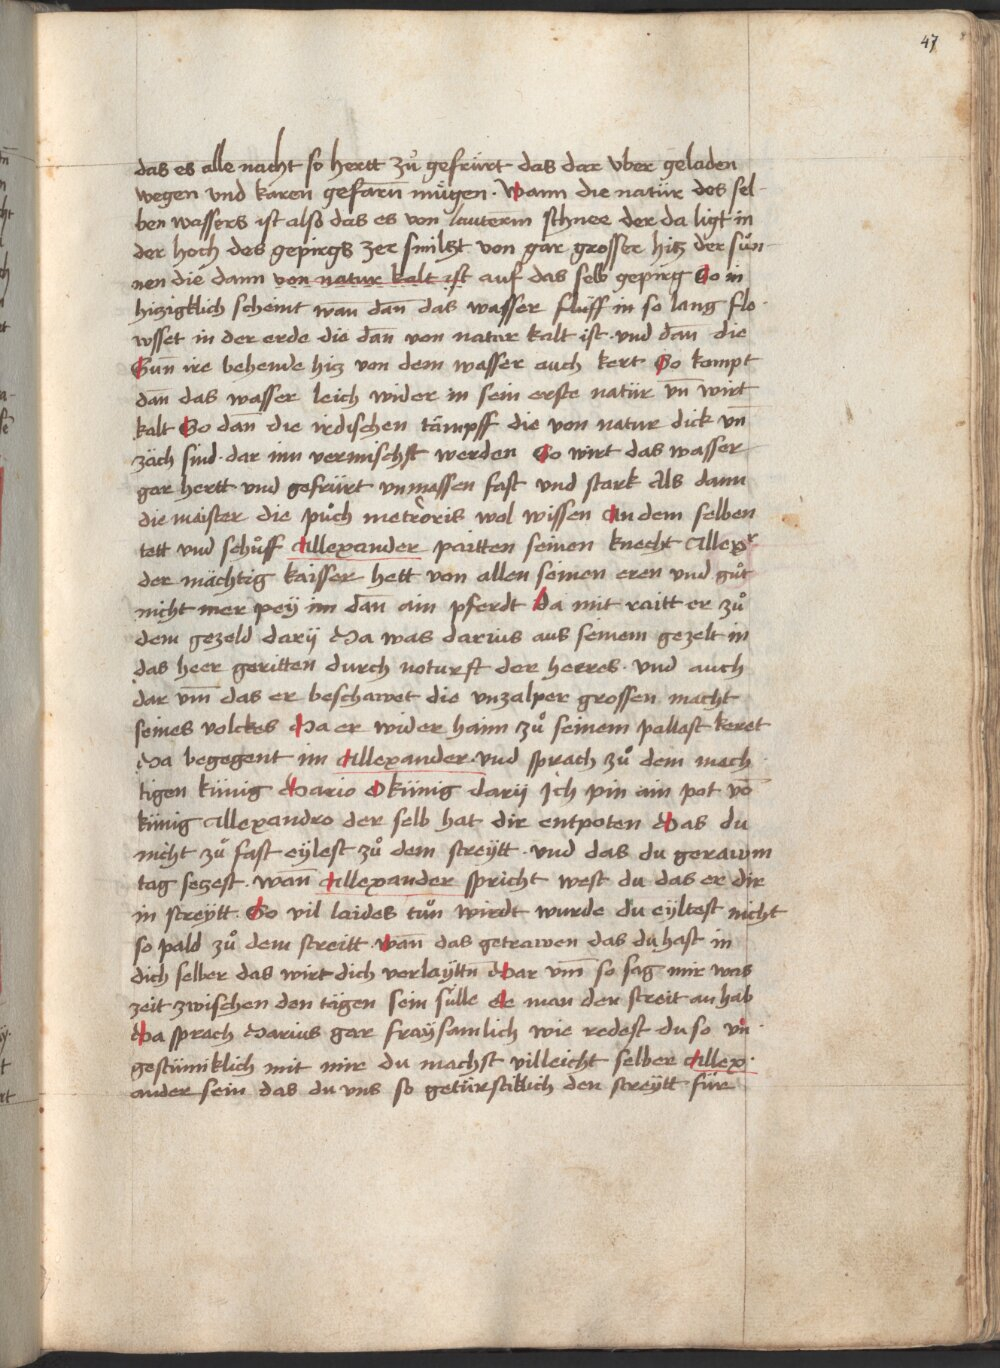 47
das es alle nacht so hertt zů gefrürt das dar vber geladen
wegen vnd karen gefarn̄ mügen · Wann die natür des sel-
ben wassers ist also das es von lauterm̄ schnee der da ligt in
der hoch des gepirgs zer smilczt von gar grosser hitz der sůn-
nen die dann von natur kalt ist auf das selb gepirg So in
hiczigklich scheint wan̄ dan̄ das wasser fluff in so lang flo-
wsset in der erde die dan̄ von natur kalt ist · vnd dan̄ die
Sun̄ ire behende hitz von dem wasser auch kert So kompt
dan̄ das wasser leich wider in sein erste natür vn̄ wirt
kalt So dan̄ die irdischen tämpff die von natur dick vn̄
zäch sind · dar inn vermischst werden So wirt das wasser
gar hertt vnd gefrürt vnmassen fast vnd stark Als dann
die maister die půch metroris wol wissen An dem selben
tett vnd schůff Allexander paitten seinen knecht Allexr
der mächtig kaisser hett von allen seinen eren vnd gůt
nicht mer pey im dan̄ ain pferdt Da mit raitt er zů
dem gezeld darij Da was darius aus seinem gezelt in
das heer geritten durch noturft der herres · vnd auch
dar vm̄ das er beschawet die vnzalper grossen macht
seines volckes Da er wider haim zů seinem pallast keret
Da begegent im Allexander · vnd sprach zů dem mech
tigen künig Dario O künig darij Ich pin ain pot vō
künig Allexandro der selb hat dir entpoten Das du
nicht zů fast eylest zů dem streytt · vnd das du gerawm
tag seczest · wan̄ Allexander spricht west du das er dir
in streytt · So vil laides tůn wirdt wurde du eyltest nicht
so pald zů dem streitt · wan̄ das getrawen das du hast in
dich selber das wirt dich verlayttn̄ Dar vm̄ so sag mir was
zeit zwischen den tägen sein sülle Ee man der streit an hab
Da sprach Darius gar fraysamlich wie redest du so vn-
gestümklich mit mir du machst villeicht selber Allex-
ander sein das du vns so getürstiklich den streytt für